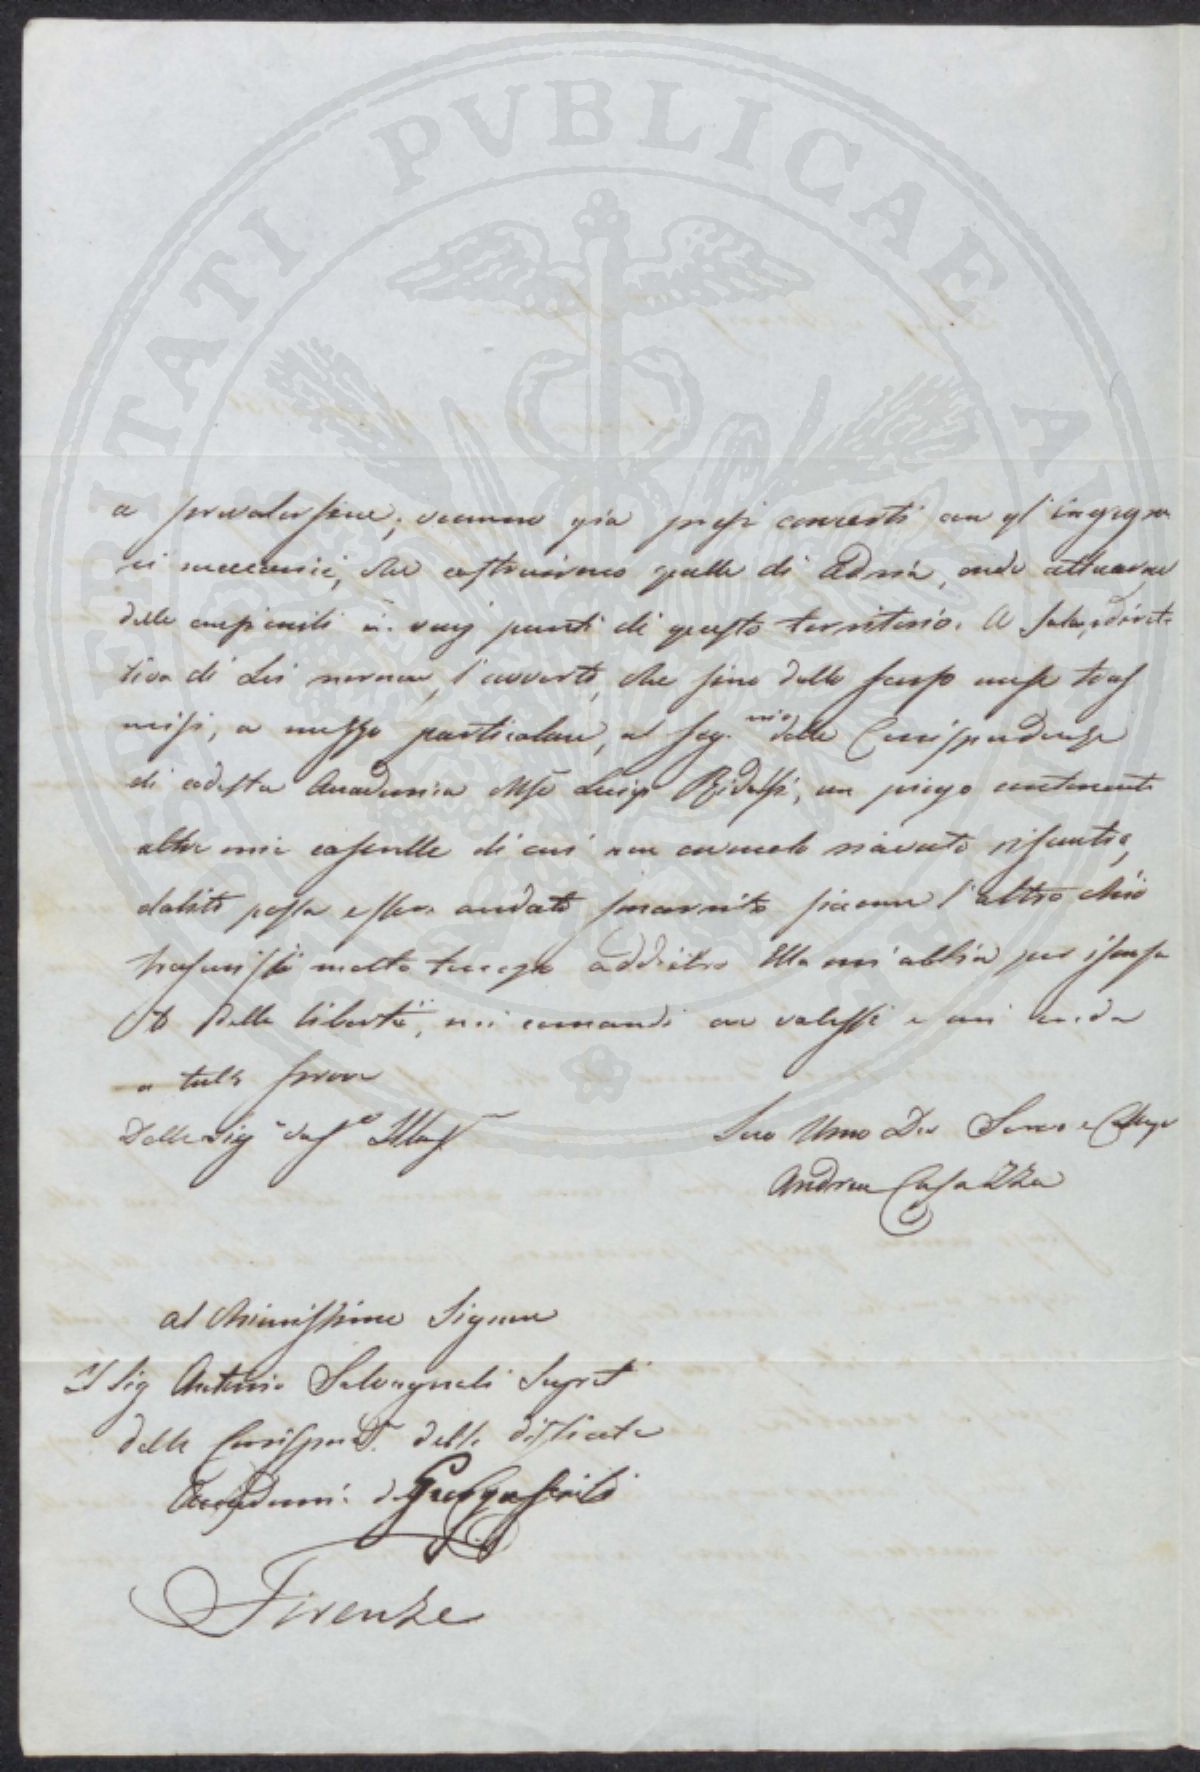 PROSPERITATI PVBLICAE AVGENDAE
a prevalersene; vennero già presi concerti con gl'ingegne
ri meccanici, che costruirono quelle di Adria, onde attivarne
delle consimili in varj punti di questo territorio. A
di Lei norma, l'avverto, che fino dallo scorso mese tras
misi, a mezzo particolare, al Seg.rio delle Corrispondenze
di codesta Accademia Mse Luigi Ridolfi, un piego contenente
altre mie di cui non avendo ricevuto
dubito possa essere andato smarrito siccome l'altro ch'io
trasmisi molto tempo addietro Ella mi abbia per iscusa
to della libertà, mi comandi ove valessi e mi creda
a tutta prova
Della Sig.
Suo Umo Dev Servo e Collega
Andrea Casazza
Al Chiarissimo Signore
Il Sig Antonio Salvagnoli Segret
delle Corrispond. della
Accademia de Georgofili
Firenze